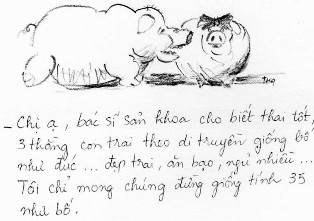 - Chị ạ, bác sĩ sản khoa cho biết thai tốt,
3 thằng con trai theo di truyền giống bố
như đúc ... đẹp trai, ăn bạo, ngủ nhiều ...
Tôi chỉ mong chúng đừng giống tính 35
như bố.